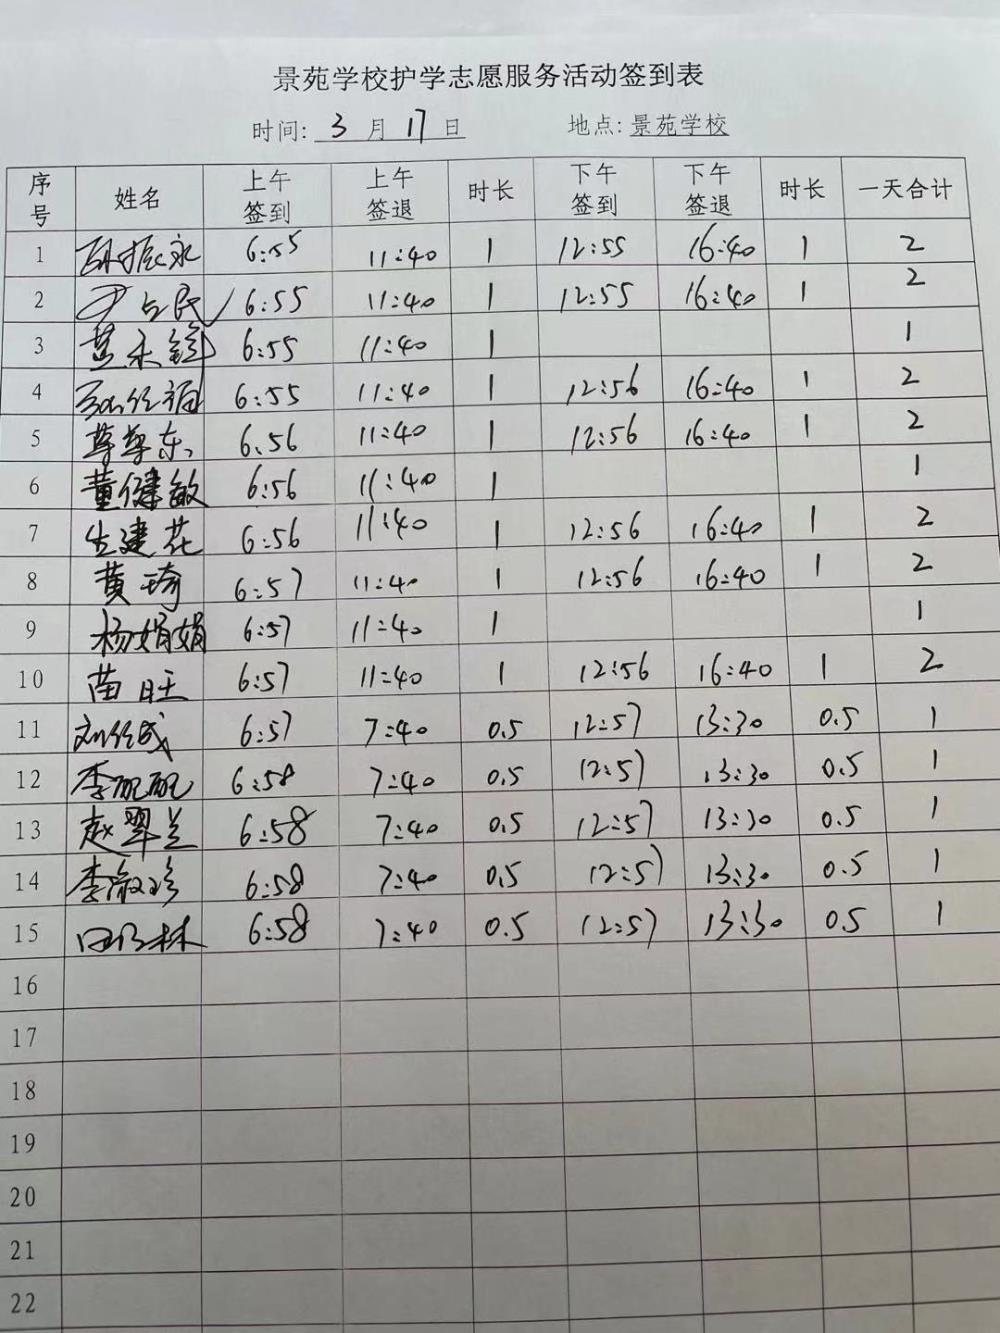 景苑学校护学志愿服务活动签到表
时间: 3 月 17 日 地点: 景苑学校
序号 姓名 上午签到 上午签退 时长 下午签到 下午签退 时长 一天合计
1 振永 6:55 11:40 1 12:55 16:40 1 2
2 占民 6:55 11:40 1 12:55 16:40 1 2
3 6:55 11:40 1 1
4 6:55 11:40 1 12:56 16:40 1 2
5 6:56 11:40 1 12:56 16:40 1 2
6 董健敏 6:56 11:40 1 1
7 生建花 6:56 11:40 1 12:56 16:40 1 2
8 黄琦 6:57 11:40 1 12:56 16:40 1 2
9 杨娟娟 6:57 11:40 1 1
10 苗旺 6:57 11:40 1 12:56 16:40 1 2
11 6:57 7:40 0.5 12:57 13:30 0.5 1
12 李配配 6:58 7:40 0.5 12:57 13:30 0.5 1
13 赵翠兰 6:58 7:40 0.5 12:57 13:30 0.5 1
14 李淑珍 6:58 7:40 0.5 12:57 13:30 0.5 1
15 6:58 7:40 0.5 12:57 13:30 0.5 1
16
17
18
19
20
21
22